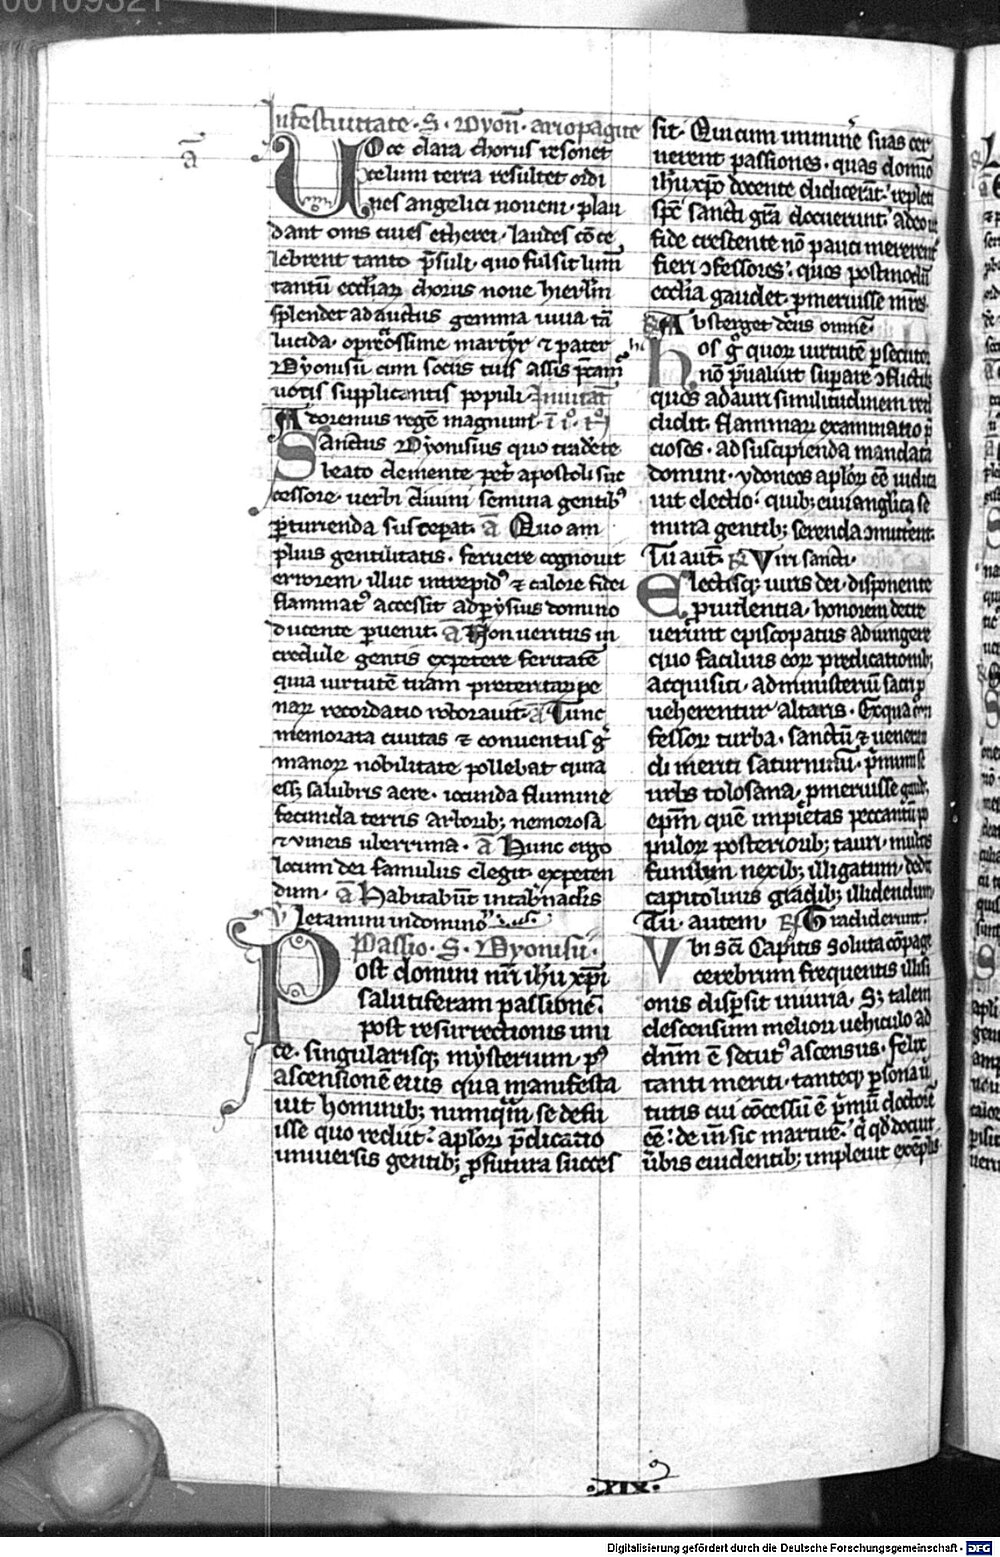 00109321
In festiuitate · S · Dyon̄ · ariopagite
ā
Uoce clara chorus resonet
celum terra resultet ordi
nes angelici noueni · plau
dant om̄s ciues etherei · laudes cōce
lebrent tanto p̄suli · quo fulsit lum̄
tantū eccl̄iaꝝ chorus noue hierl̄m
splendet adauctus gemma uiua tā
lucida · op̄ciosissime martẏr ⁊ pater
Dẏonisii cum sociis tuis assis p̄cam̄
uotis supplicantis populi · Inuitat̄
Adoremus regē magnum · ī ıº · nº
Sanctus Dẏonisius quo tradēte
beato clemente pet̄ apostoli suc
cessore · uerbi diuini semina gentibꝰ
ꝑturienda susceperat · ā Quo am
plius gentilitatis · feruere cognouit
errorem · illuc intrepidꝰ ⁊ calore fidei
flammatꝰ accessit ad parẏsius domino
ducente ꝑuenit · ā Non ueritus in
credule gentis expetere feritatē
quia uirtutē tuam preteritaꝝ pe
naꝝ recordatio roborauit · ā Tunc
memorata ciuitas ⁊ conuentus g̅
manoꝝ nobilitate pollebat quia
ess; salubris aere · iocunda flumine
fecunda terris arborib; nemorosa
⁊ uineis uberrima · ā Hunc ergo
locum dei famulus elegit · expeten
dum · ā Habitabūt in tab̄naclis
V Letamini in domino
Passio · S · Dyonisii ·
Post domini nr̄i ih̄u xp̄i
salutiferam passionē ·
post resurrectionis uni
ce · singularisq; mẏsterium · pꝰ
ascensionē eius qua manifesta
uit hominib; numq̄m se defu
isse quo rediit · ap̄loꝝ p̄dicatio
uniuersis gentib; ꝓfutura succes
sit · Qui cum imminē suas cer
nerent passiones · quas domino
ih̄u xp̄o docente didicerāt · repleti
sp̄c sancti gr̄a docuerunt · adeo ut
fide crescente nō pauci mererent̄
fieri ↄfessores · quos postmodū
eccl̄ia gaudet · ꝓmeruisse mr̄es ·
℟ Absterget deus omnē ·
hos g̊ quoꝝ uirtutē ꝑsecuto
nō p̄ualuit suꝑare ↄflictus
quos ad auri similitudinem red
didit · flammaꝝ examinatio p̄
ciosos · ad suscipienda mandata
domini · ydoneos ap̄loꝝ eē iudica
uit electio · quib; euuanglica se
mina gentib; serenda ↄmitterent ·
Tu aut̄ · ℟ Viri sancti ·
Electisq; uiris dei · disponente
ꝓuidentia · honorem decre
uerunt episcopatus adiungere
quo facilius eoꝝ predicationib;
acquisiti · ad ministeriū sacri p
ueherentur altaris · Ex qua ↄn
fessoꝝ turba · sanctū ⁊ uene
di meriti saturninū · p̄mum
urbs tolosana · ꝓmeruisse gaud
ep̄m quē impietas peccantiū po
puloꝝ posteriorib; tauri · multis
funibus nexib; illigatum · dedit
capitolinis gradib; illidendum
Tu · autem · ℟ Tradiderunt ·
Vbi sc̄i capitis soluta cōpage
cerebrum frequentis illisi
onis disp̄sit iniuria · S; talem
descensum meliori uehiculo ad
dn̄m ē secutꝰ ascensus · felix
tanti meriti · tanteq; ꝑsona ū
tutis cui cōcessū ē p̄mū doctorē
cē · de īn sic martirē · q̄ qd̄ docuit
ūbis euidentib; impleuit exēplis
· XIX ·
Digitalisierung gefördert durch die Deutsche Forschungsgemeinschaft - DFG